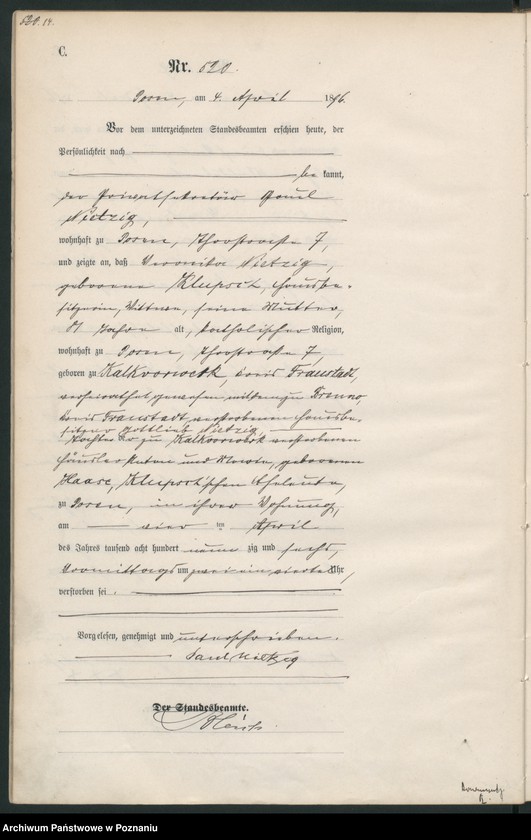 520. 14.
C.
Nr. 520.
Posen, am 4. April 1896.
Vor dem unterzeichneten Standesbeamten erschien heute, der
Persönlichkeit nach
be kannt,
der Privatsekretär Paul
Nietzig,
wohnhaft zu Posen, Thorstrasse 7,
und zeigte an, daß Veronika Nietzig,
geborene Klupsch, Hausbe-
sitzerin, Wittwe, seine Mutter,
Jahre alt, katholischer Religion,
wohnhaft zu Posen, Thorstrasse 7,
geboren zu Kalkvorwerk, Kreis Fraustadt,
verheirathet gewesen mit dem zu
Kreis Fraustadt, verstorbenen Hausbe-
sitzer Gottlieb Nietzig,
Tochter der zu Kalkvorwerk verstorbenen
Händler Anton und geborenen
Haase, Klupsch'schen Eheleute,
zu Posen, in ihrer Wohnung,
am vier ten April
des Jahres tausend acht hundert neun zig und sechs,
Vormittags um zwei ein viertel Uhr,
verstorben sei.
Vorgelesen, genehmigt und unterschrieben.
Paul Nietzig
Der Standesbeamte.
Archiwum Państwowe w Poznaniu